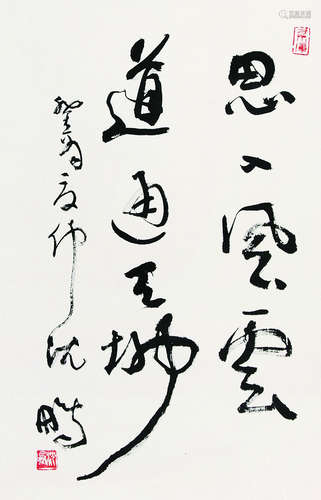 思入風雲
道通天地
癸酉夏仲沈鵬